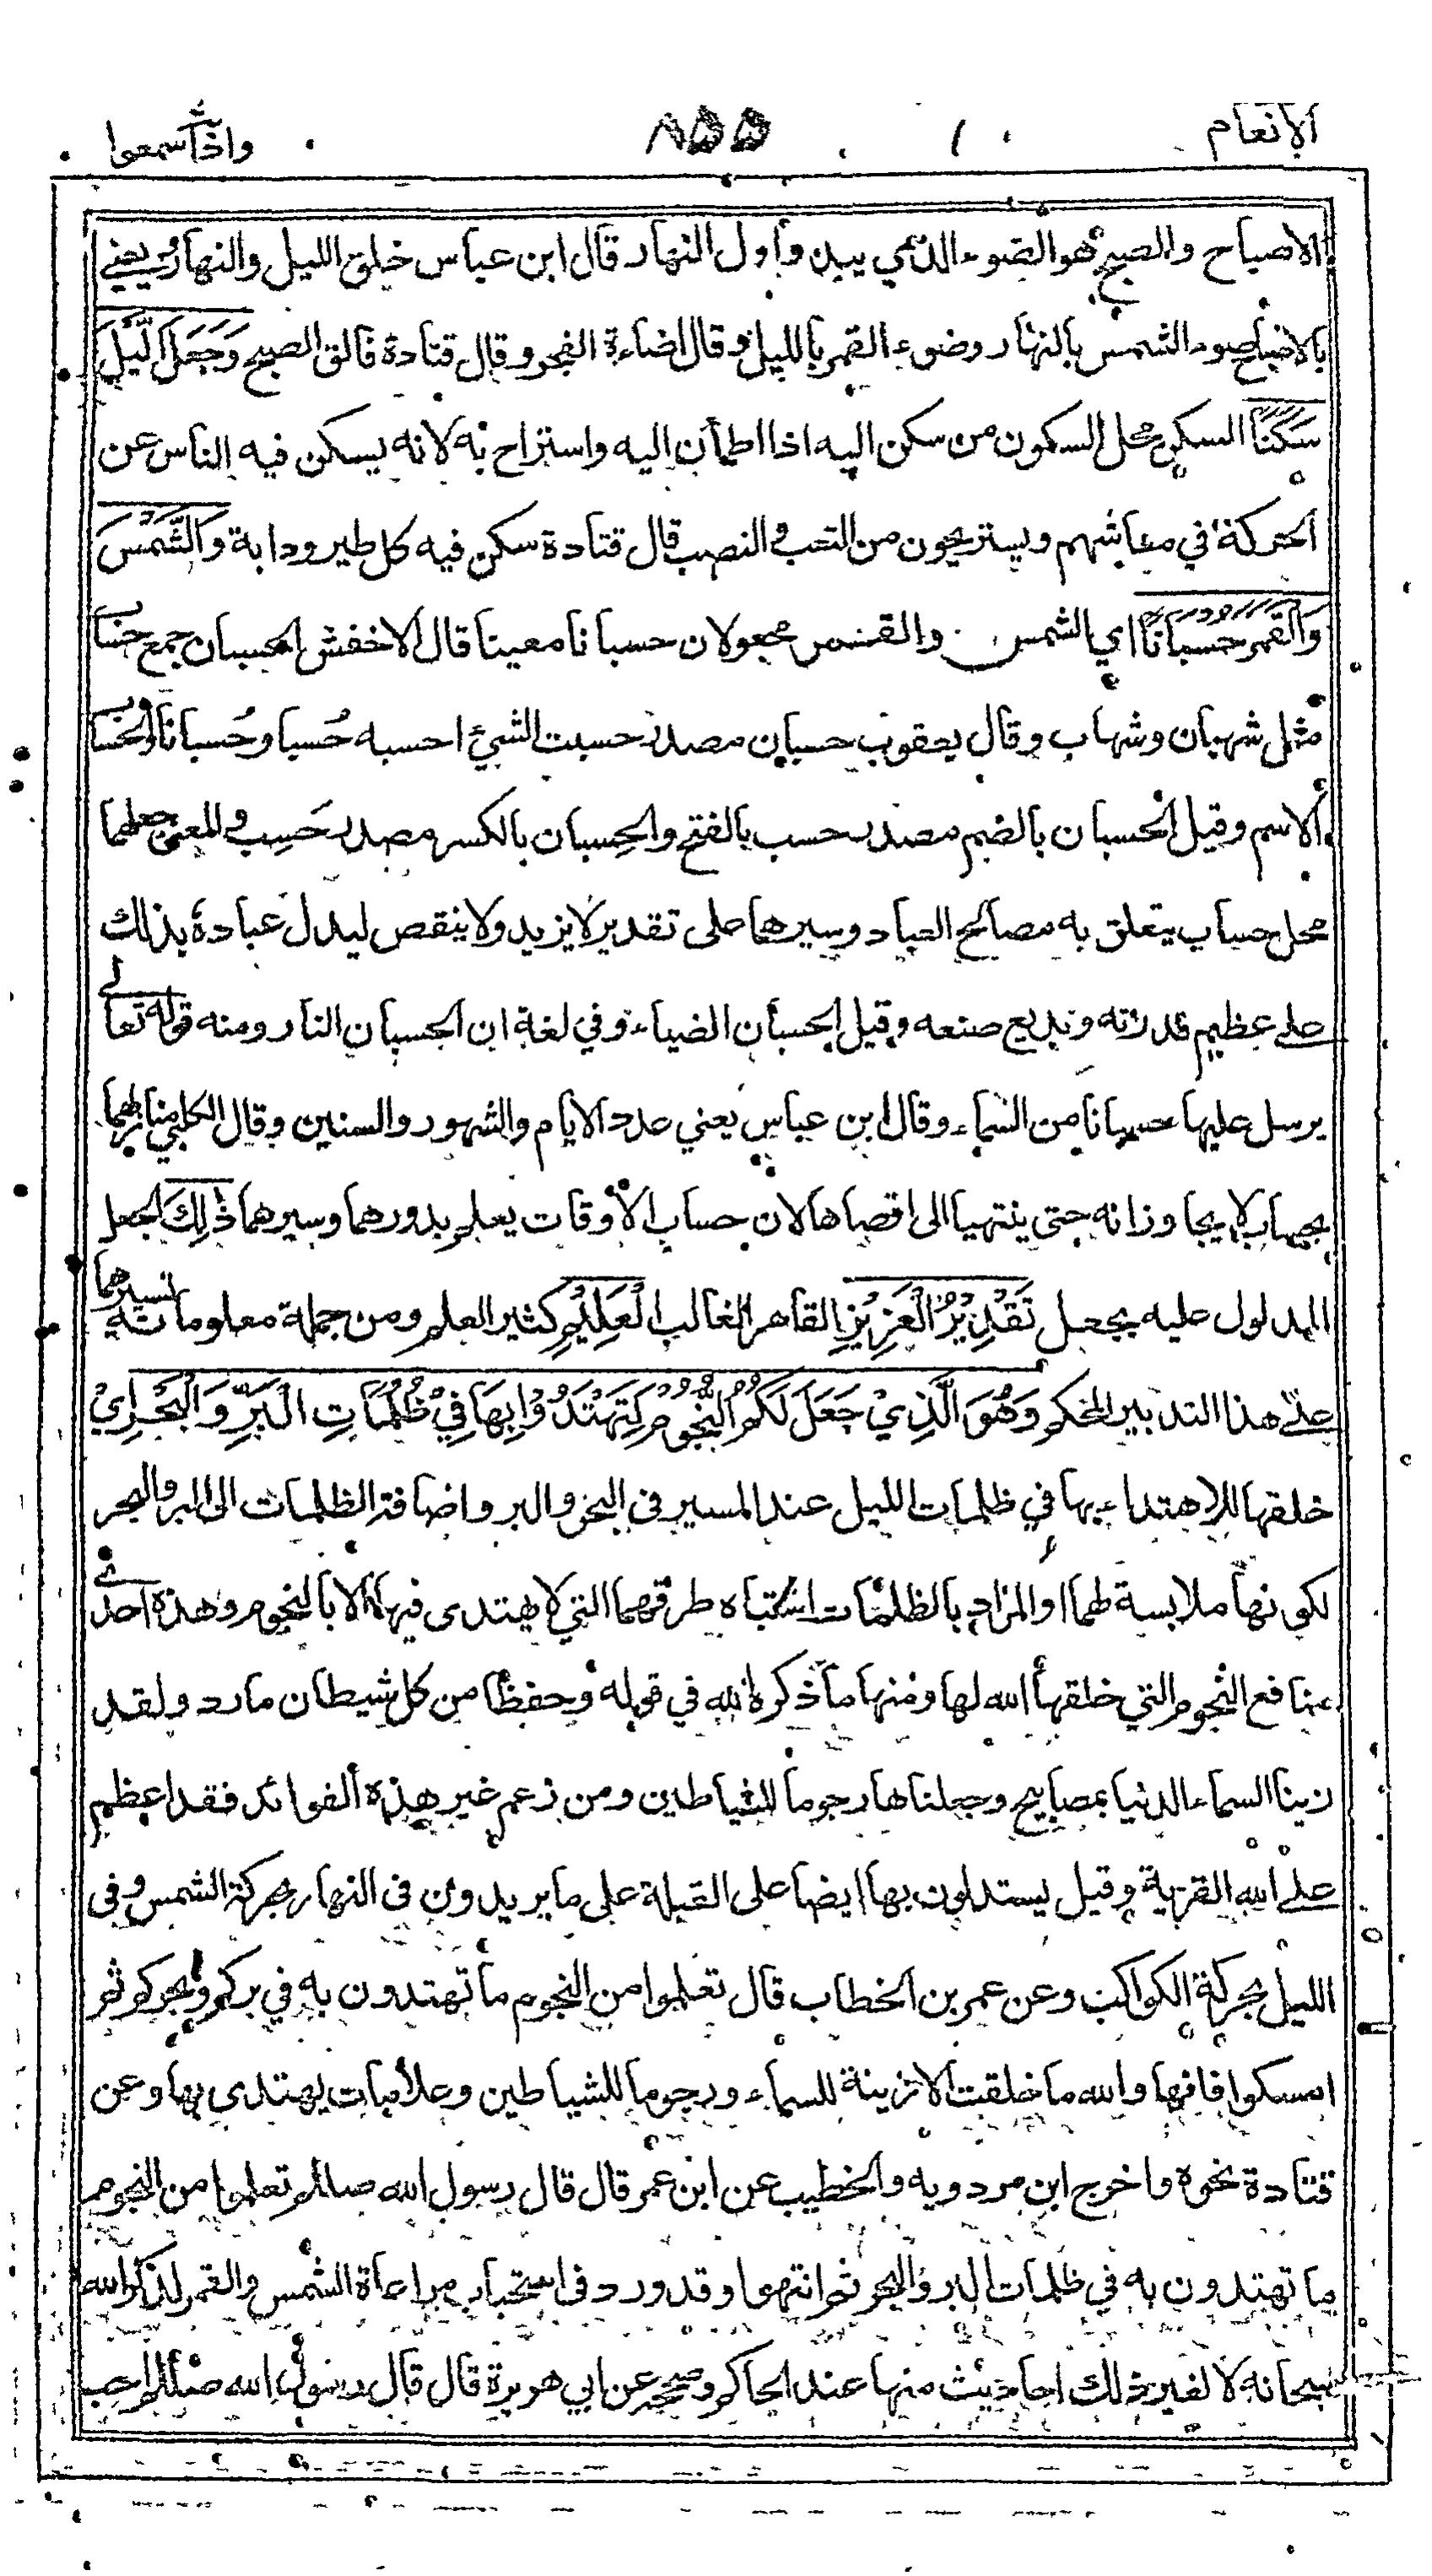 الانعام ٨٥٥ واذا سمعوا
الاصباح والصبح هو الضوء الذي يبدو أول النهار قال ابن عباس خلق الليل والنهار يعني
بالاصباح ضوء الشمس بالنهار وضوء القمر بالليل وقال اضاءة الفجر وقال قتادة فالق الصبح وَجَعَلَ الَّيْلَ
سَكَنًا السكن محل السكون من سكن اليه اذا اطمأن اليه واستراح به لانه يسكن فيه الناس عن
الحركة في معاشهم ويستريحون من التعب و النصب قال قتادة سكن فيه كل طير ودابة وَالشَّمْسَ
وَالْقَمَرَ حُسْبَانًا اي الشمس والقمر مجعولان حسبانا معينا قال الاخفش الحسبان جمع حساب
مثل شهبان وشهاب وقال يعقوب حسبان مصدر حسبت الشيئ احسبه حُسبا وحُسبانا والحساب
الاسم وقيل الحسبان بالضم مصدر حسب بالفتح والحِسبان بالكسر مصدر حَسِب والمعنى جعلهما
محل حساب يتعلق به مصالح العباد وسيرهما على تقدير لا يزيد ولا ينقص ليدل عبادة بذلك
على عظيم قدرته وبديع صنعه وقيل الحسبان الضياء وفي لغة ان الحسبان النار ومنه قوله تعالى
يرسل عليها حسبانا من السماء وقال ابن عباس يعني عدد الايام والشهور والسنين وقال الكلبي منازلهما
بحساب لا يجاوزانه حتى ينتهيا الى اقصاها لان حساب الاوقات يعلم بدورهما وسيرهما ذٰلِكَ الجعل
المدلول عليه بجعل تَقْدِيْرُ الْعَزِيْزِ القاهر الغالب الْعَلِيْمِ كثير العلم ومن جملة معلوماته تسييرهما
على هذا التدبير المحكم وَهُوَ الَّذِيْ جَعَلَ لَكُمُ النُّجُوْمَ لِتَهْتَدُوْا بِهَا فِيْ ظُلُمٰاتِ الْبَرِّ وَالْبَحْرِ اي
خلقها للاهتداء بها في ظلمات الليل عند المسير فى البحر والبر واضافة الظلمات الى البر والبحر
لكونها ملابسة لهما او المراد بالظلمات اشتباه طرقهما التي لا يهتدى فيها الا بالنجوم وهذة احدى
منافع النجوم التي خلقها الله لها ومنها ما ذكرة الله في قوله وحفظا من كل شيطان مارد ولقد
زينا السماء الدنيا بمصابيح وجعلناها رجوما للشياطين ومن زعم غير هذه الفوائد فقد اعظم
على الله الفرية وقيل يستدلون بها ايضا على القبلة على ما يريدون فى النهار بحركة الشمس وفى
الليل بحركة الكواكب وعن عمر بن الخطاب قال تعلموا من النجوم ما تهتدون به في بركم وبحركم ثم
امسكوا فانها والله ما خلقت الا زينة للسماء ورجوما للشياطين وعلامات يهتدي بها وعن
قتادة نحوة واخرج ابن مردويه والخطيب عن ابن عمر قال قال رسول الله صللم تعلموا من النجوم
ما تهتدون به في ظلمات البر والبحر ثم انتهوا وقد ورد فى استحباب مراعاة الشمس والقمر لذكر الله
سبحانه لا لغير ذلك احاديث منها عند الحاكم وصححه عن ابي هريرة قال قال رسول الله صللم احب